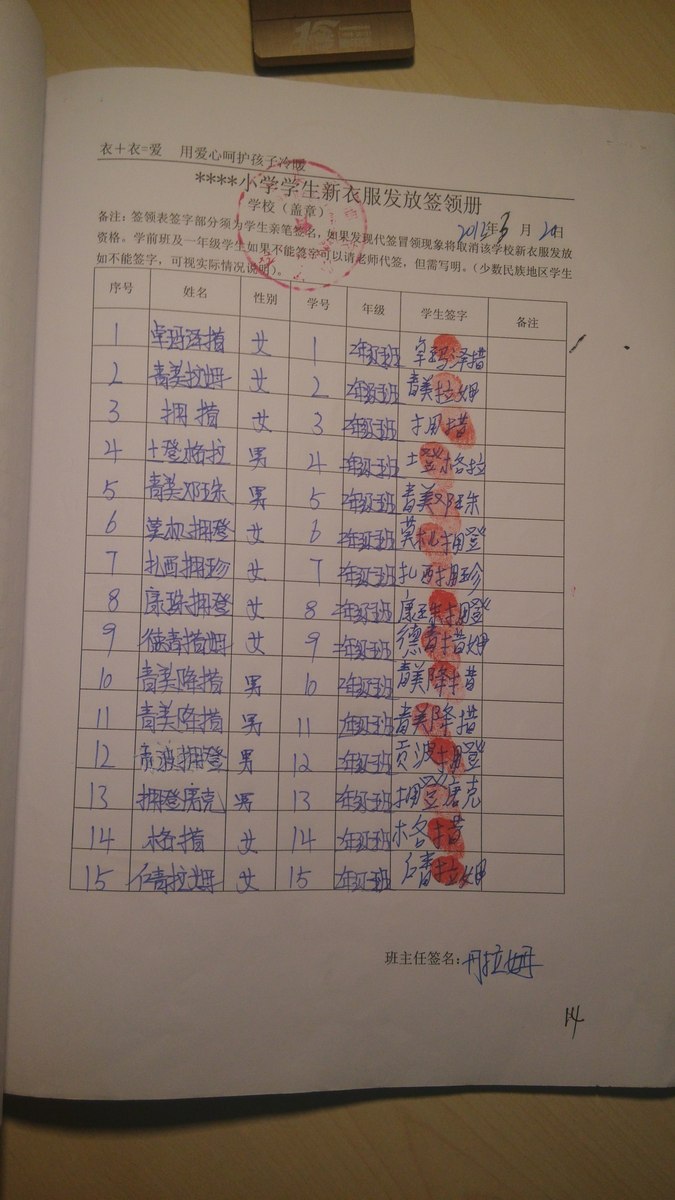 衣+衣=爱 用爱心呵护孩子冷暖
****小学学生新衣服发放签领册
学校(盖章)
年3月20日
备注:签领表签字部分须为学生亲笔签名,如果发现代签冒领现象将取消该学校新衣服发放
资格。学前班及一年级学生如果不能签字可以请老师代签,但需写明。(少数民族地区学生
如不能签字,可视实际情况说明)。
序号 姓名 性别 学号 年级 学生签字 备注
1 卓玛泽措 女 1 2年级1班 卓玛泽措
2 青美拉姆 女 2 2年级1班 青美拉姆
3 拥措 女 3 2年级1班 拥措
4 土登格拉 男 4 2年级1班 土登格拉
5 青美邓珠 男 5 2年级1班 青美邓珠
6 拥登 女 6 2年级1班 拥登
7 扎西拥珍 女 7 2年级1班 扎西拥珍
8 康珠拥登 女 8 2年级1班 康珠拥登
9 德青措姆 女 9 2年级1班 德青措姆
10 青美降措 男 10 2年级1班 青美降措
11 青美降措 男 11 2年级1班 青美降措
12 贡波拥登 男 12 2年级1班 贡波拥登
13 拥登唐克 男 13 2年级1班 拥登唐克
14 格措 女 14 2年级1班 格措
15 仁青拉姆 女 15 2年级1班 仁青拉姆
班主任签名:丹拉姆
14